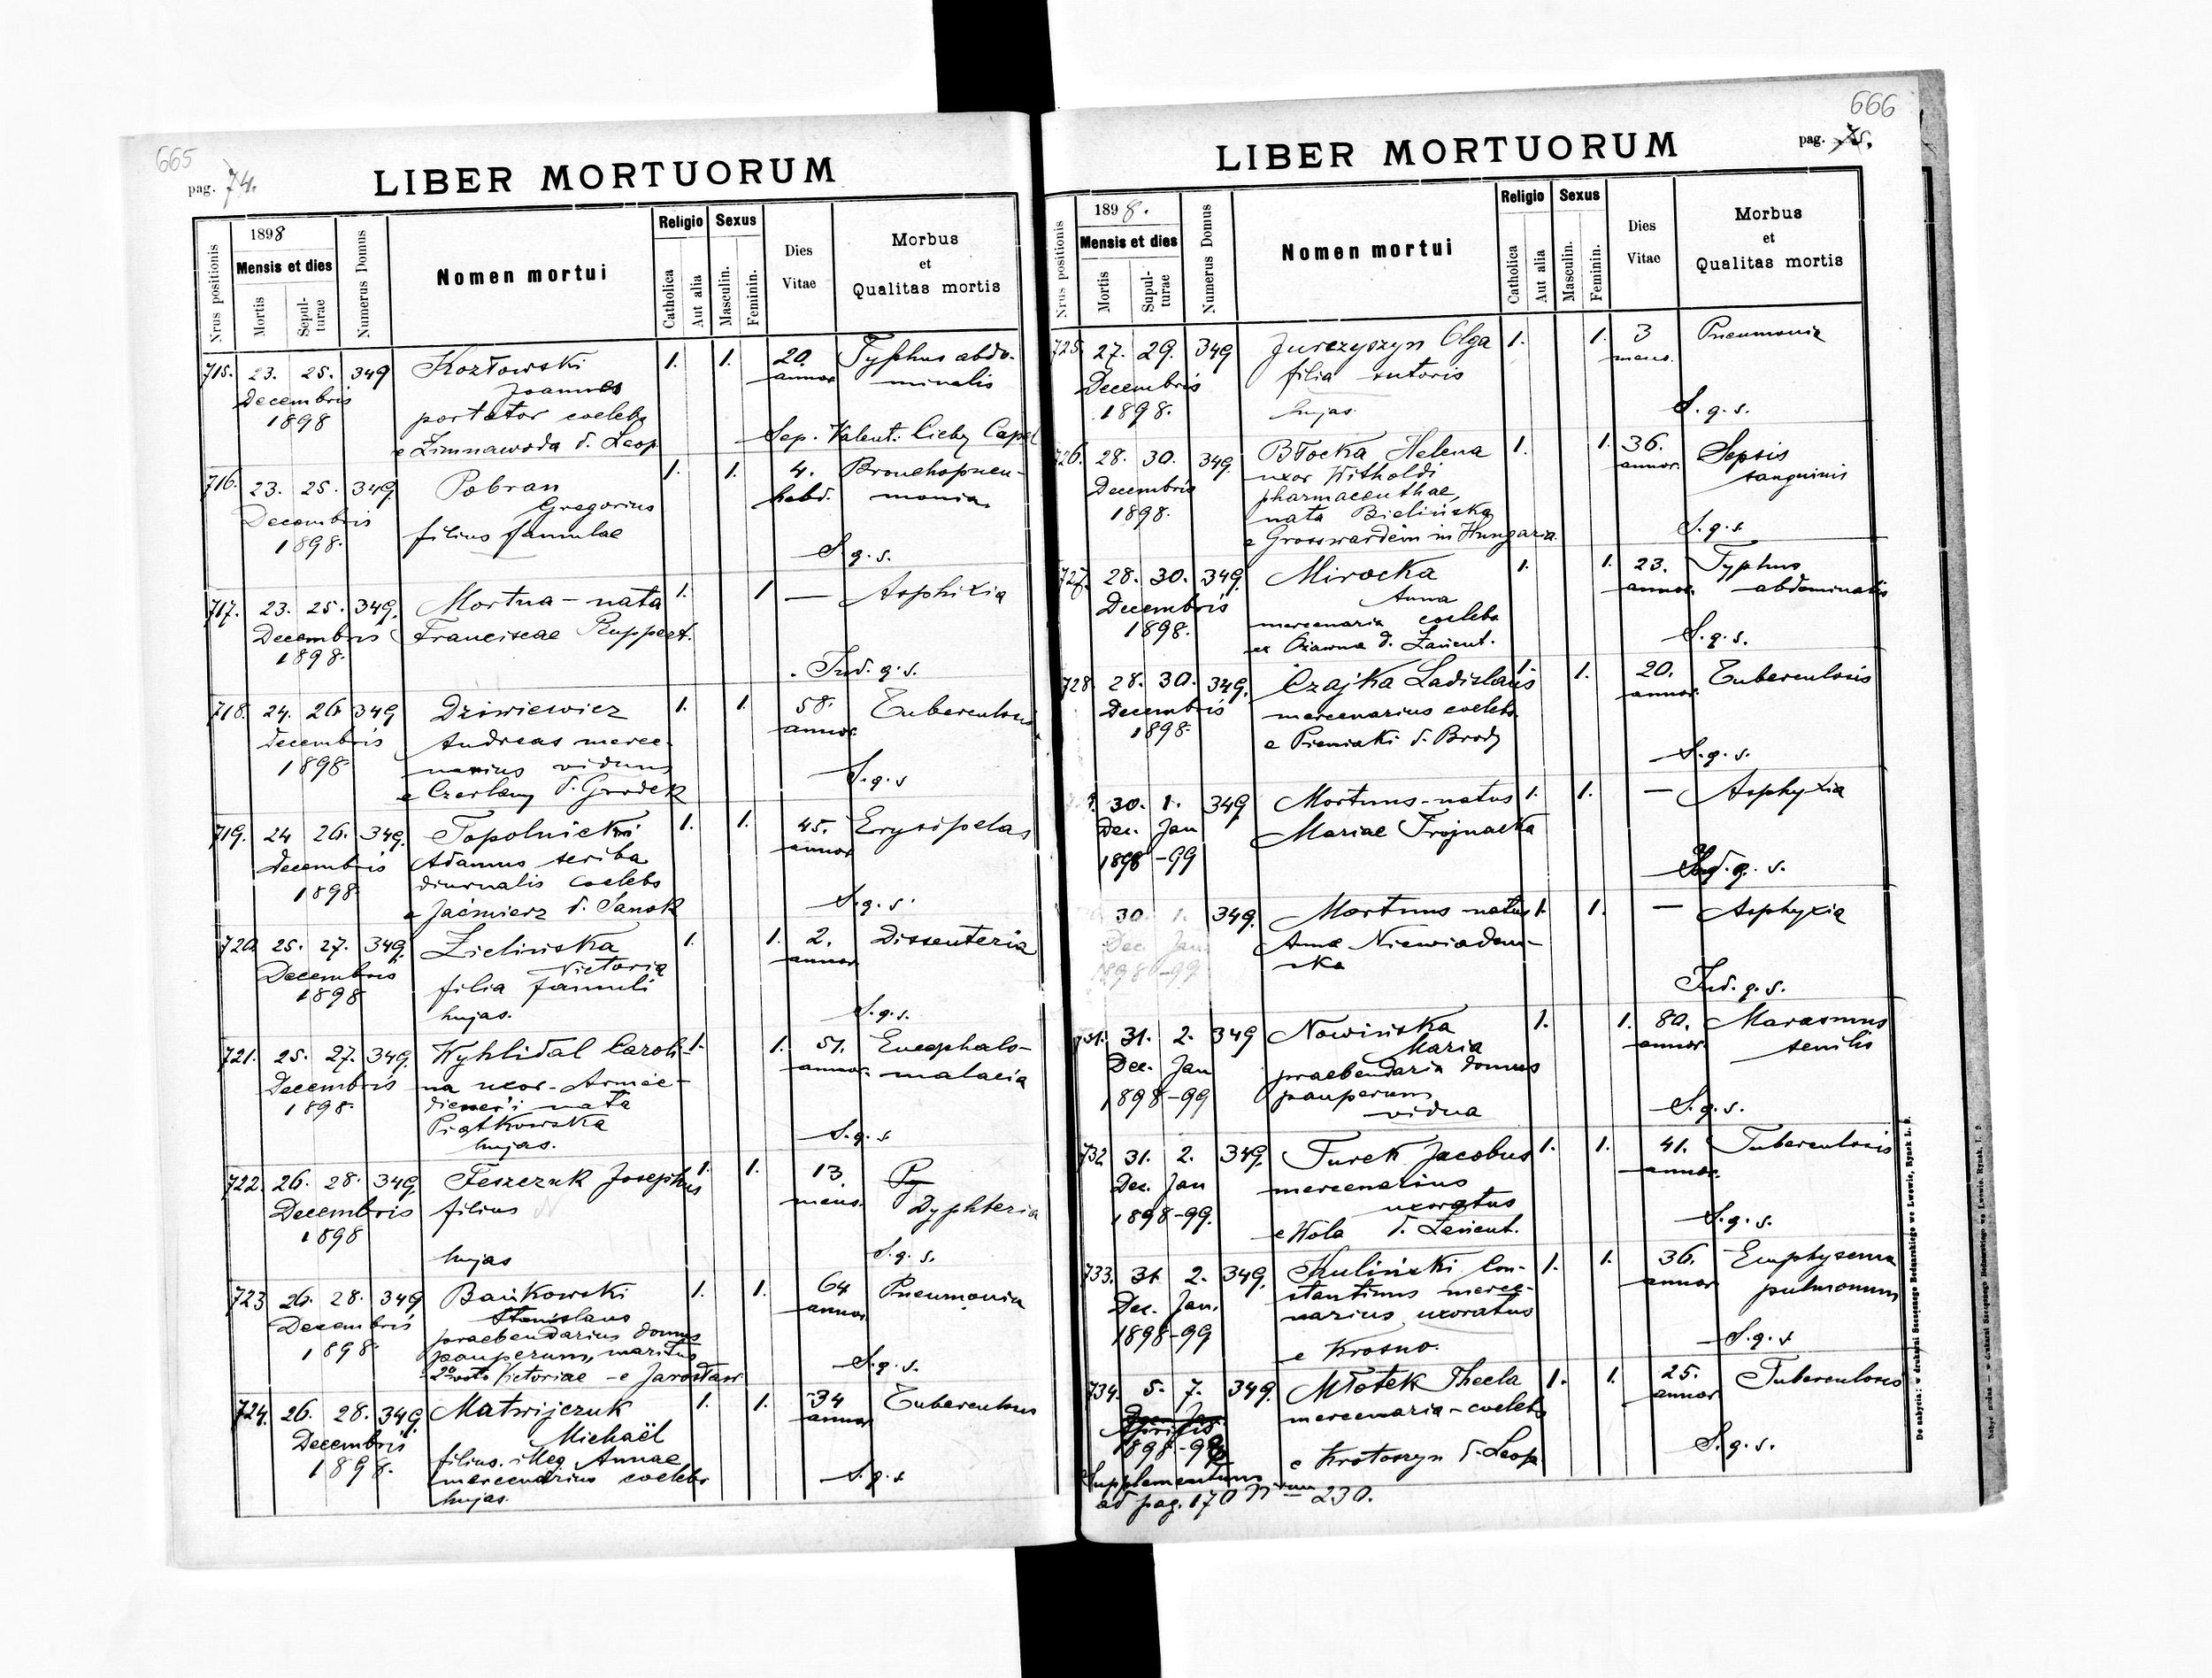 665
pag. 74.
LIBER MORTUORUM
Nrus positionis
1898
Mensis et dies
Mortis
Sepul-
turae
Numerus Domus
Nomen mortui
Religio
Catholica
Aut alia
Sexus
Masculin.
Feminin.
Dies
Vitae
Morbus
et
Qualitas mortis
715. 23. 25. 349 Kozłowski 1. 1. 20. Typhus abdo-
Decembris Joannes annor minalis
1898 portator coelebs
e Zimnawoda d. Leop Sep. Valent. Capel
716. 23. 25. 349 Pobran 1. 1. 4. Bronchopneu-
Decembris Gregorius hebd. monia
1898. filius famulae
S. g. s.
717. 23. 25. 349. Mortua - nata 1. 1 — Asphixia
Decembris Franciscae Ruppert.
1898. Ind. g. s.
718. 24. 26 349 Dziwiewicz 1. 1. 58. Tuberculosis
Decembris Andreas merce- annor.
1898 narius viduus
e Czerlany d. Grodek S. g. s
719. 24 26. 349. Topolnicki 1. 1. 45. Erysipelas
Decembris Adamus scriba annor
1898 diurnalis coelebs
e Jaćmierz d. Sanok S. g. s.
720. 25. 27. 349. Zielińska 1. 1. 2. Dissenteria
Decembris Victoria annor
1898 filia famuli
hujas. S. g. s.
721. 25. 27. 349. Wyhlidal Caroli- 1. 1. 51. Encephalo-
Decembris na uxor Armee- annor. malacia
1898. diener'i nata
Piątkowska
hujas. S. g. s
722. 26. 28. 349 Feszczuk Josephus 1. 1. 13. Py
Decembris filius mens. Dyphteria
1898
hujas S. g. s.
723 26. 28. 349 Bańkowski 1. 1. 64 Pneumonia
Decembris Stanislaus annor
1898 praebendarius domus
pauperum, maritus
2do voto Victoriae - e Jarosław S. g. s.
724. 26. 28. 349. Matwijczuk 1. 1. 34 Tuberculosis
Decembris Michaël annor
1898. filius illeg Annae
mercenarius coelebs S. g. s
hujas.
666
pag. 75.
LIBER MORTUORUM
Nrus positionis
1898.
Mensis et dies
Mortis
Supul-
turae
Numerus Domus
Nomen mortui
Religio
Catholica
Aut alia
Sexus
Masculin.
Feminin.
Dies
Vitae
Morbus
et
Qualitas mortis
725. 27. 29. 349 Jurczyszyn Olga 1. 1. 3 Pneumonia
Decembris filia sutoris mens.
1898. hujas. S. g. s.
726. 28. 30. 349. Błocka Helena 1. 1. 36. Sepsis
Decembris uxor Witholdi annor. sanguinis
1898. pharmaceuthae,
nata Bielińska S. g. s
e Grosswardein in Hungaria
727. 28. 30. 349. Mirocka 1. 1. 23. Typhus
Decembris Anna annor. abdominalis
1898. mercenaria coelebs
d. Łańcut. S. g. s.
728. 28. 30. 349. Czajka Ladislaus 1. 1. 20. Tuberculosis
Decembris mercenarius coelebs annor.
1898. e Pieniaki d. Brody S. g. s.
30. 1. 349 Mortuus-natus 1. 1. — Asphyxia
Dec. Jan Mariae Trojnacka
1898-99 Ind. g. s.
30. 1. 349. Mortuus natus 1. 1. — Asphyxia
Dec. Jan. Anna Niewiadom-
1898-99 ska
Ind. g. s.
731. 31. 2. 349 Nowińska 1. 1. 80. Marasmus
Dec. Jan Maria annor. senilis
1898-99 praebendaria domus
pauperum
vidua S. g. s.
732 31. 2. 349. Turek Jacobus 1. 1. 41. Tuberculosis
Dec. Jan mercenarius annor.
1898-99. uxoratus
e Wola d. Łańcut. S. g. s.
733. 31 2. 349. Skuliński Con- 1. 1. 36. Emphysema
Dec. Jan. stantinus merce- annor pulmonum
1898-99 narius uxoratus
e Krosno. S. g. s
734. 5. 7. 349. Młotek Thecla 1. 1. 25. Tuberculosis
Dec. Jan. mercenaria-coelebs annor
Aprilis
1898-99 e Krotoszyn d. Leop. S. g. s.
Supplementum
ad pag. 170 Nrum 230.
De nabycia: w drukarni Szczęsnego Bednarskiego we Lwowie, Rynek L. 9.